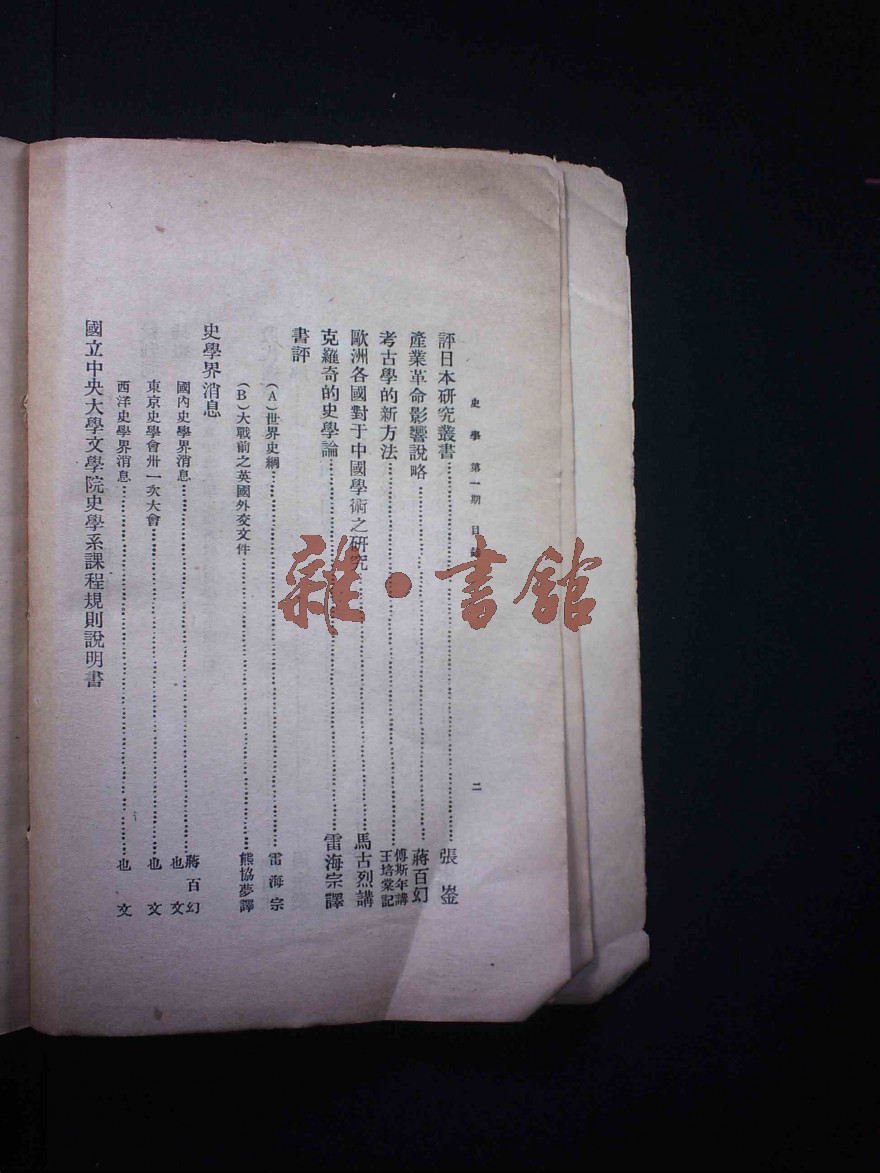 史學 第一期 目錄 二
評日本研究叢書…………張崟
產業革命影響說略…………蔣百幻
考古學的新方法…………傅斯年講 王培棠記
歐洲各國對于中國學術之研究…………馬古烈講
克羅奇的史學論…………雷海宗譯
書評
(A)世界史綱…………雷海宗
(B)大戰前之英國外交文件…………熊協夢譯
史學界消息
國內史學界消息…………蔣百幻 也文
東京史學會卅一次大會…………也文
西洋史學界消息…………也文
國立中央大學文學院史學系課程規則說明書
雜·書館